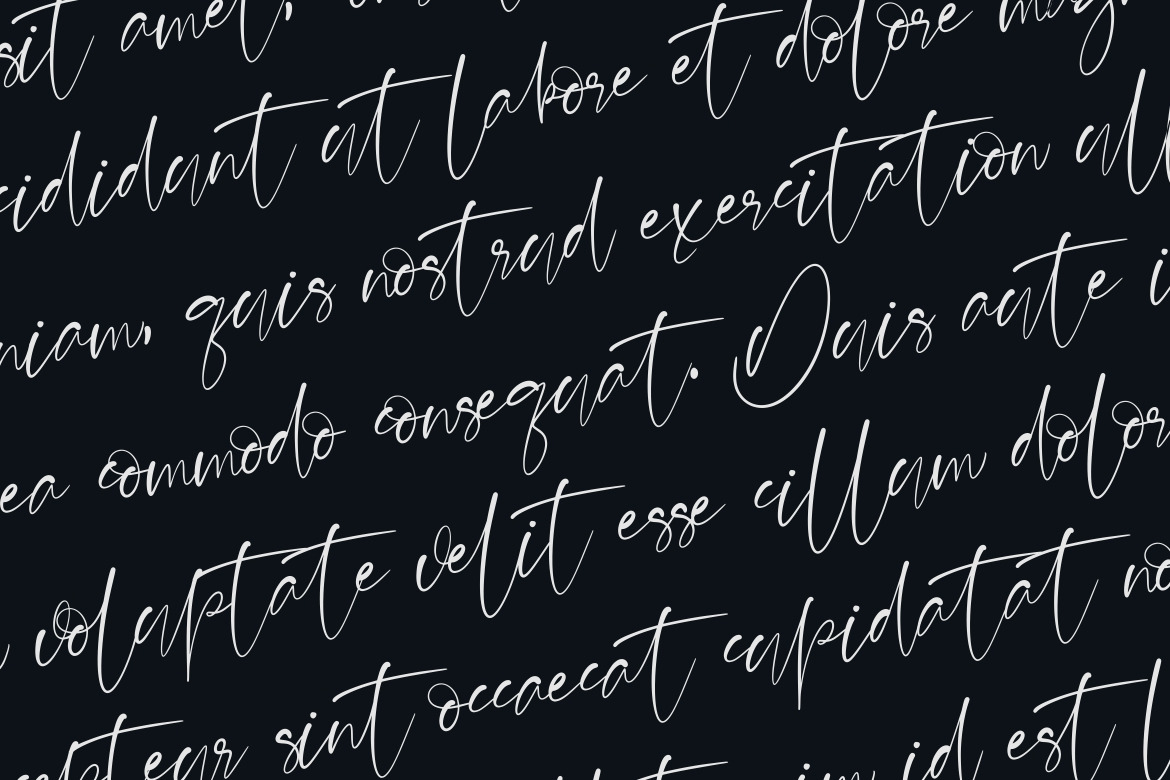 sit amet,
cididunt ut labore et dolore magn
niam, quis nostrud exercitation ull
ea commodo consequat. Duis aute i
voluptate velit esse cillum dolor
cepteur sint occaecat cupidatat no
im id est l